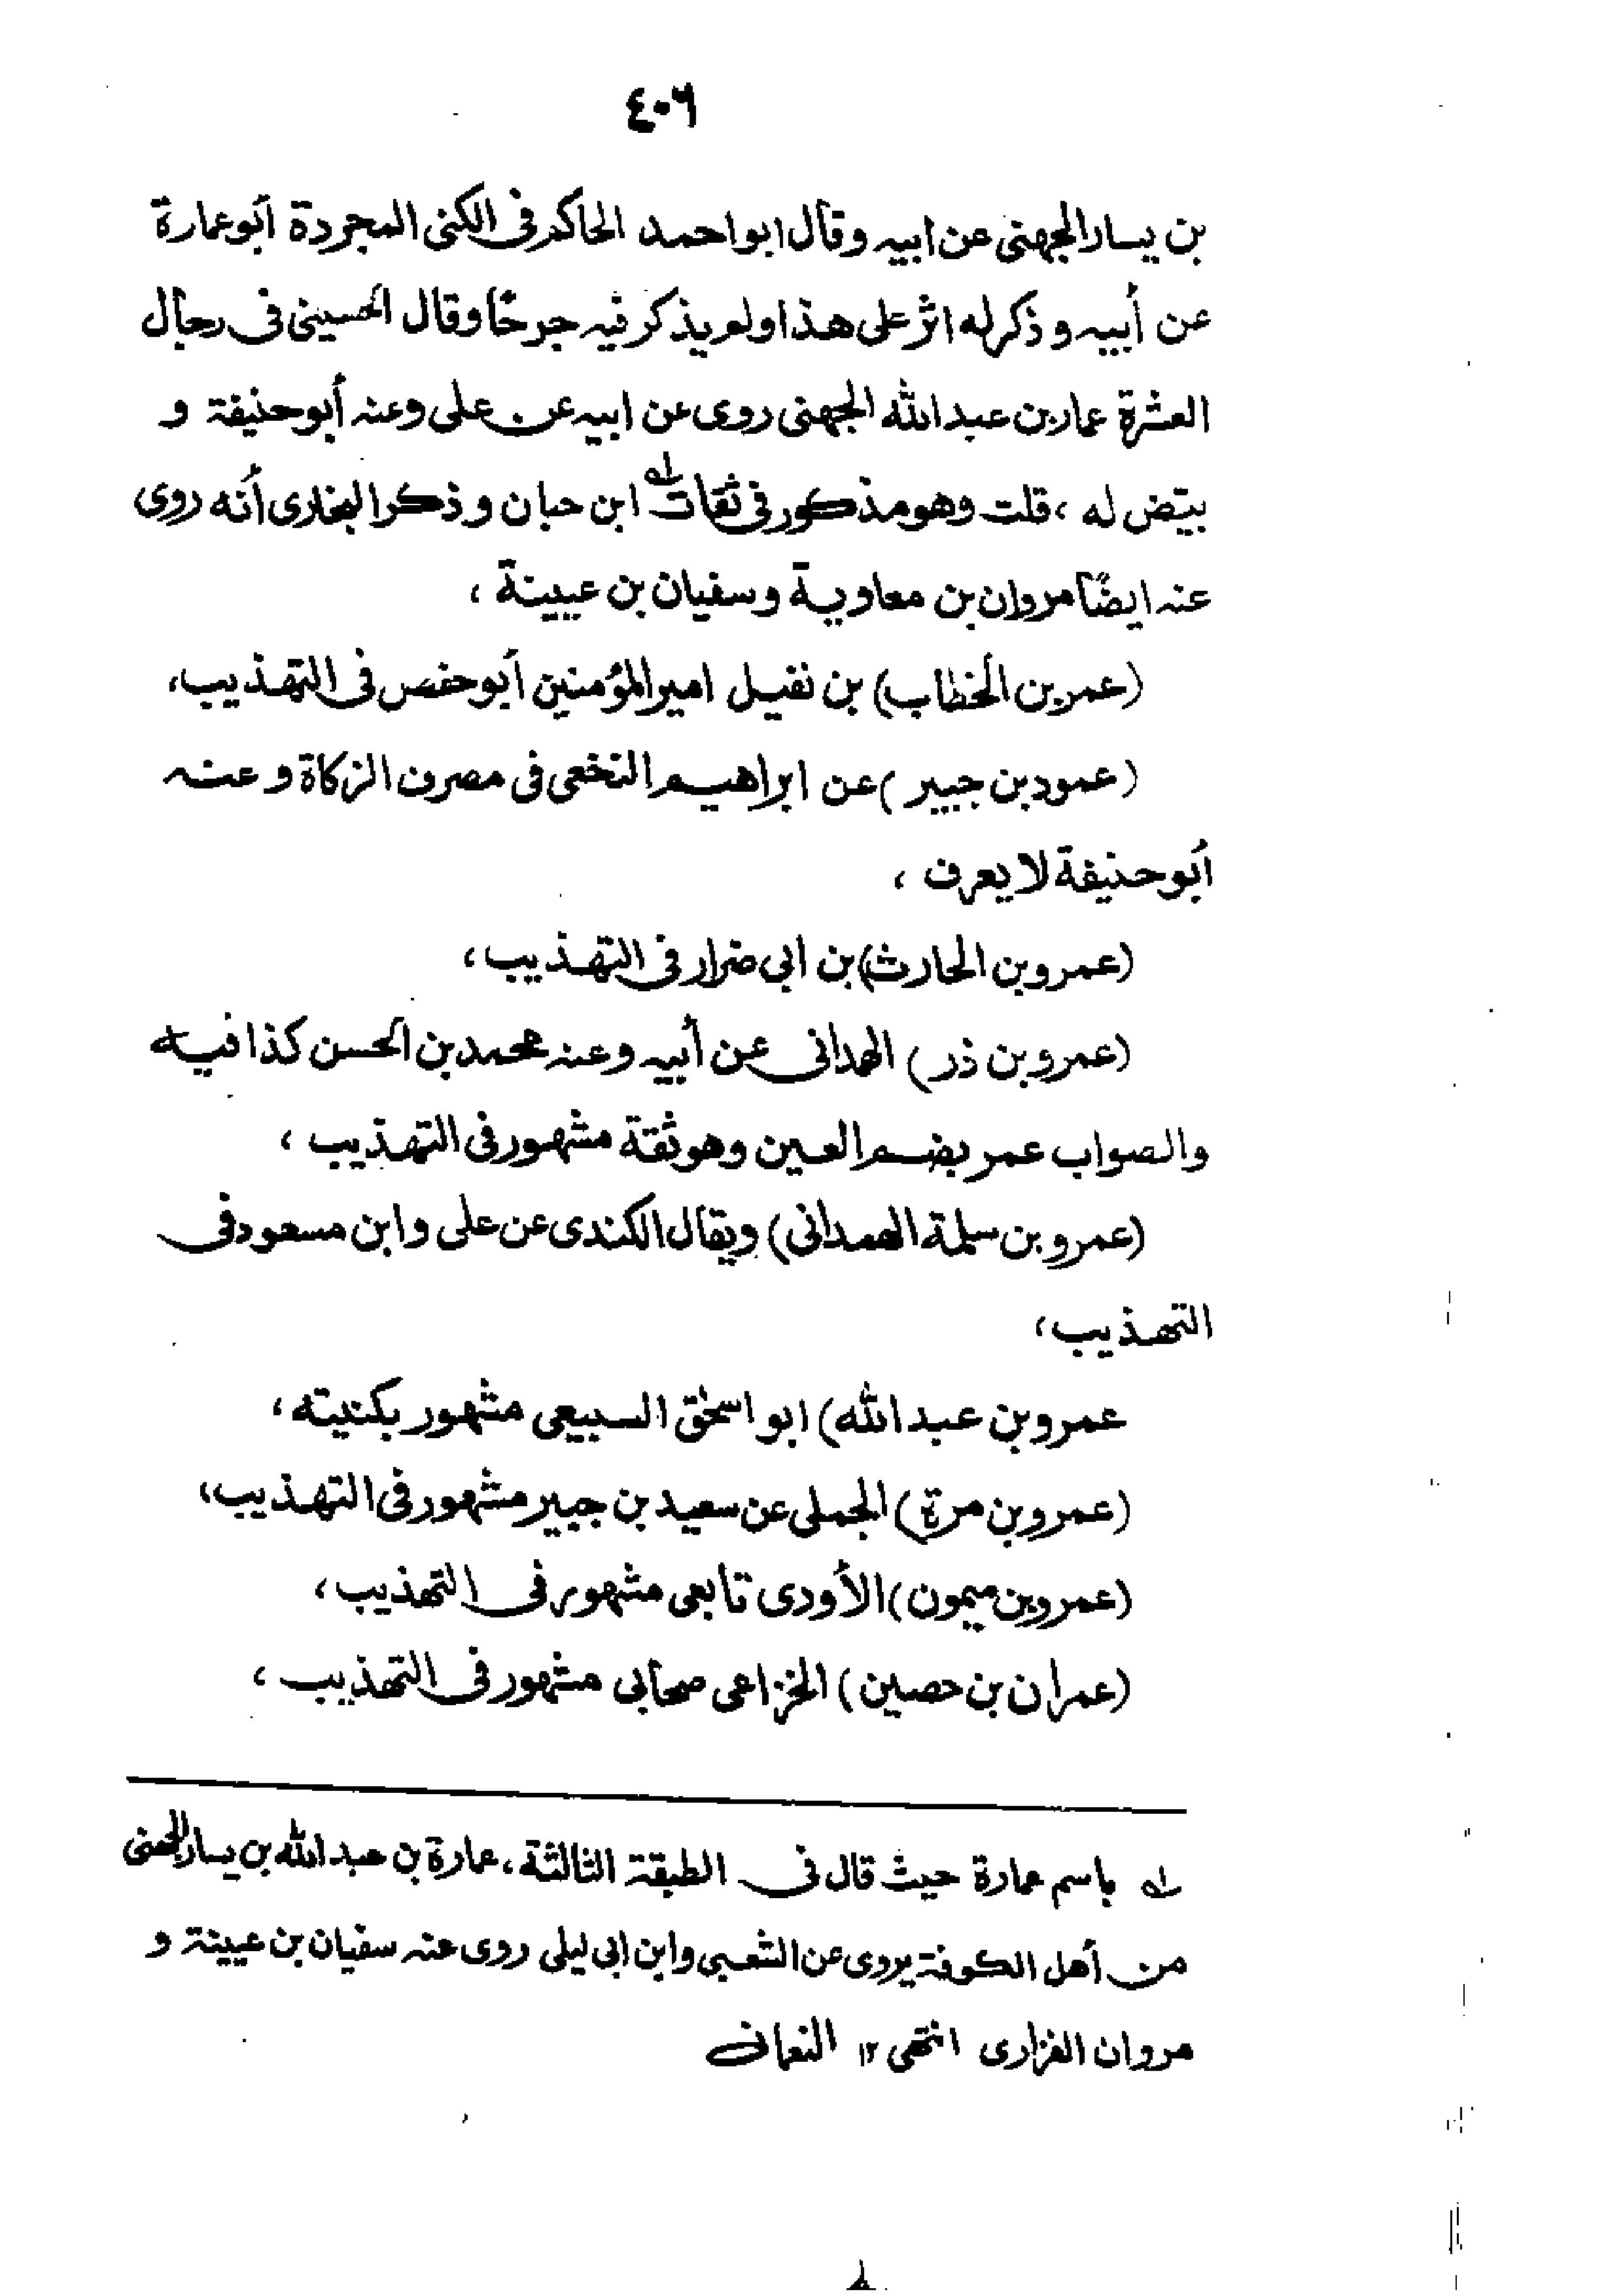 ٤٠٦
بن يسار الجهنى عن ابيه وقال ابو احمد الحاكم فى الكنى المجردة أبو عمارة
عن أبيه وذكر له اثر على هذا ولم يذكر فيه جرحًا وقال الحسينى فى رجال
العشرة عمار بن عبد الله الجهنى روى عن ابيه عن على وعنه أبو حنيفة و
بيّض له ، قلت وهو مذكور فى ثقات له ابن حبان وذكر البخارى أنه روى
عنه ايضًا مروان بن معاوية وسفيان بن عيينة ،
(عمر بن الخطاب) بن نفيل امير المؤمنين أبو حفص فى التهذيب،
(عمود بن جبير) عن ابراهيم النخعى فى مصرف الزكاة وعنه
أبو حنيفة لا يعرف ،
(عمرو بن الحارث) بن ابى ضرار فى التهذيب،
(عمرو بن ذر) الهمدانى عن أبيه وعنه محمد بن الحسن كذا فيه
والصواب عمر بضم العين وهو ثقة مشهور فى التهذيب ،
(عمرو بن سلمة الهمدانى) ويقال الكندى عن على وابن مسعود فى
التهذيب،
عمرو بن عبد الله) ابو اسحٰق السبيعى مشهور بكنيته ،
(عمرو بن مرة) الجملى عن سعيد بن جبير مشهور فى التهذيب،
(عمرو بن ميمون) الأودى تابعى مشهور فى التهذيب ،
(عمران بن حصين) الخزاعى صحابى مشهور فى التهذيب ،
له باسم عمارة حيث قال فى الطبقة الثالثة، عمارة بن عبد الله بن يسار الجهنى
من أهل الكوفة يروى عن الشعبى وابن ابى ليلى روى عنه سفيان بن عيينة و
مروان الفزارى انتهى ١٢ النعمانى